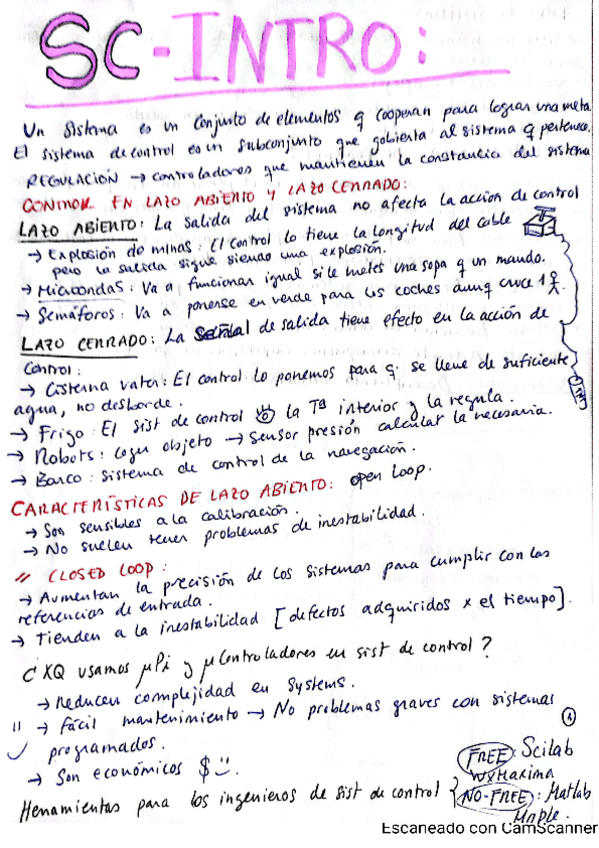 SC-INTRO:
Un sistema es un conjunto de elementos q cooperan para lograr una meta.
El sistema de control es un subconjunto que gobierna al sistema q pertenece.
REGULACIÓN → controladores que mantienen la constancia del sistema
CONTROL EN LAZO ABIERTO Y LAZO CERRADO:
LAZO ABIERTO: La salida del sistema no afecta la acción de control
→ Explosión de minas: El control lo tiene la longitud del cable
pero la salida sigue siendo una explosión.
→ Microondas: Va a funcionar igual si le metes una sopa q un mando.
→ Semáforos: Va a ponerse en verde para los coches aunq cruce 1
LAZO CERRADO: La Señal de salida tiene efecto en la acción de
control:
→ Cisterna vater: El control lo ponemos para q se llene de suficiente
agua, no desborde.
→ Frigo: El sist de control la Tª interior y la regula.
→ Robots: coger objeto → sensor presión calcular la necesaria.
→ Barco: sistema de control de la navegación.
CARACTERÍSTICAS DE LAZO ABIERTO: open loop.
→ Son sensibles a la calibración.
→ No suelen tener problemas de inestabilidad.
// CLOSED LOOP:
→ Aumentan la precisión de los sistemas para cumplir con las
referencias de entrada.
→ Tienden a la inestabilidad [defectos adquiridos x el tiempo].
¿XQ usamos μPi y μControladores en sist de control?
→ Reducen complejidad en systems.
→ Fácil mantenimiento → No problemas graves con sistemas
programados.
→ Son económicos $
Herramientas para los ingenieros de sist de control { FREE: Scilab
wxMaxima
NO-FREE: Matlab
Maple.
1
Escaneado con CamScanner